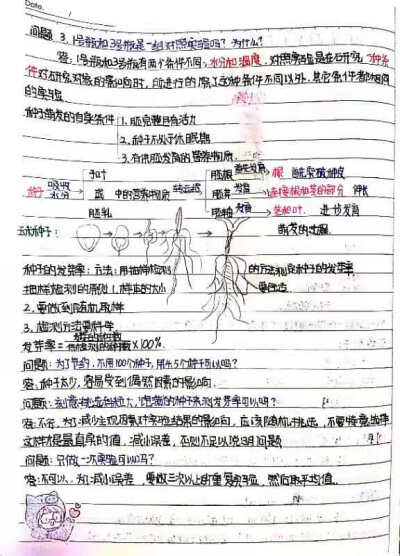 Date.
问题3、1号瓶和3号瓶是一组对照实验吗？为什么？
答：1号瓶和3号瓶有两个条件不同，水分和温度，对照实验是在研究一种条
件对研究对象的影响时，所进行的除了这种条件不同以外，其它条件都相同
的实验
种子萌发的自身条件 1、胚完整且有活力
2、种子不处于休眠期
3、有供胚发育的营养物质
种子 吸收水分 子叶 或 胚乳 中的营养物质 转运给 胚根 发育 根
胚轴 发育 连接根和茎的部分 伸长
胚芽 发育 茎和叶 进一步发育
种子：
萌发的过程
种子的发芽率：方法：用抽样检测 的方法测定种子的发芽率
抽样检测的原则 1、样本的大小
2、要做到随机取样
3、检测方法要科学
发芽率= ×100%
问题：为了节约，不用100个种子，用4、5个种子可以吗？
答：种子太少，容易受到偶然因素的影响
问题：刻意挑选的粒大，饱满的种子来测发芽率可以吗？
答：不行，为了减少主观因素对实验结果的影响，应该随机挑选，不要
这样才是最真实的值，减小误差，否则不足以说明问题
问题：只做一次实验可以吗？
答：不可以，为了减小误差，要做三次以上的重复实验，然后取平均值